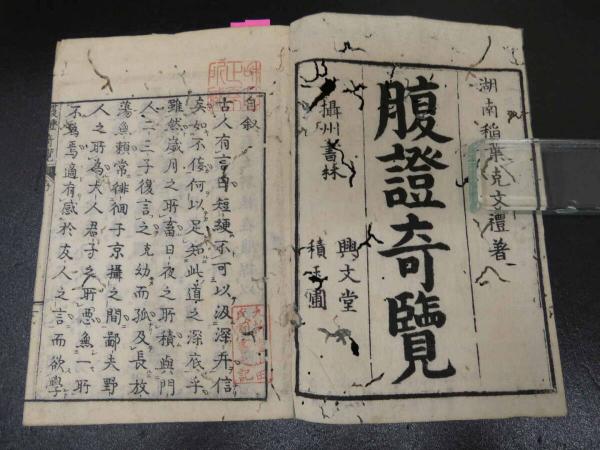 湖南稲葉克文禮著
腹證奇覽
攝州書林
興文堂
積玉圃
自叙
古人有言曰短綆不可以汲深井信
矣如不佞何以足知此道之深底乎
雖然歳月之所畜日夜之所積與門
人二三子復言之克幼而孤及長放
蕩無頼常徘徊于京攝之間鄙夫野
人之所為大人君子之所悪無一所
不為焉適有感於友人之言而欲學